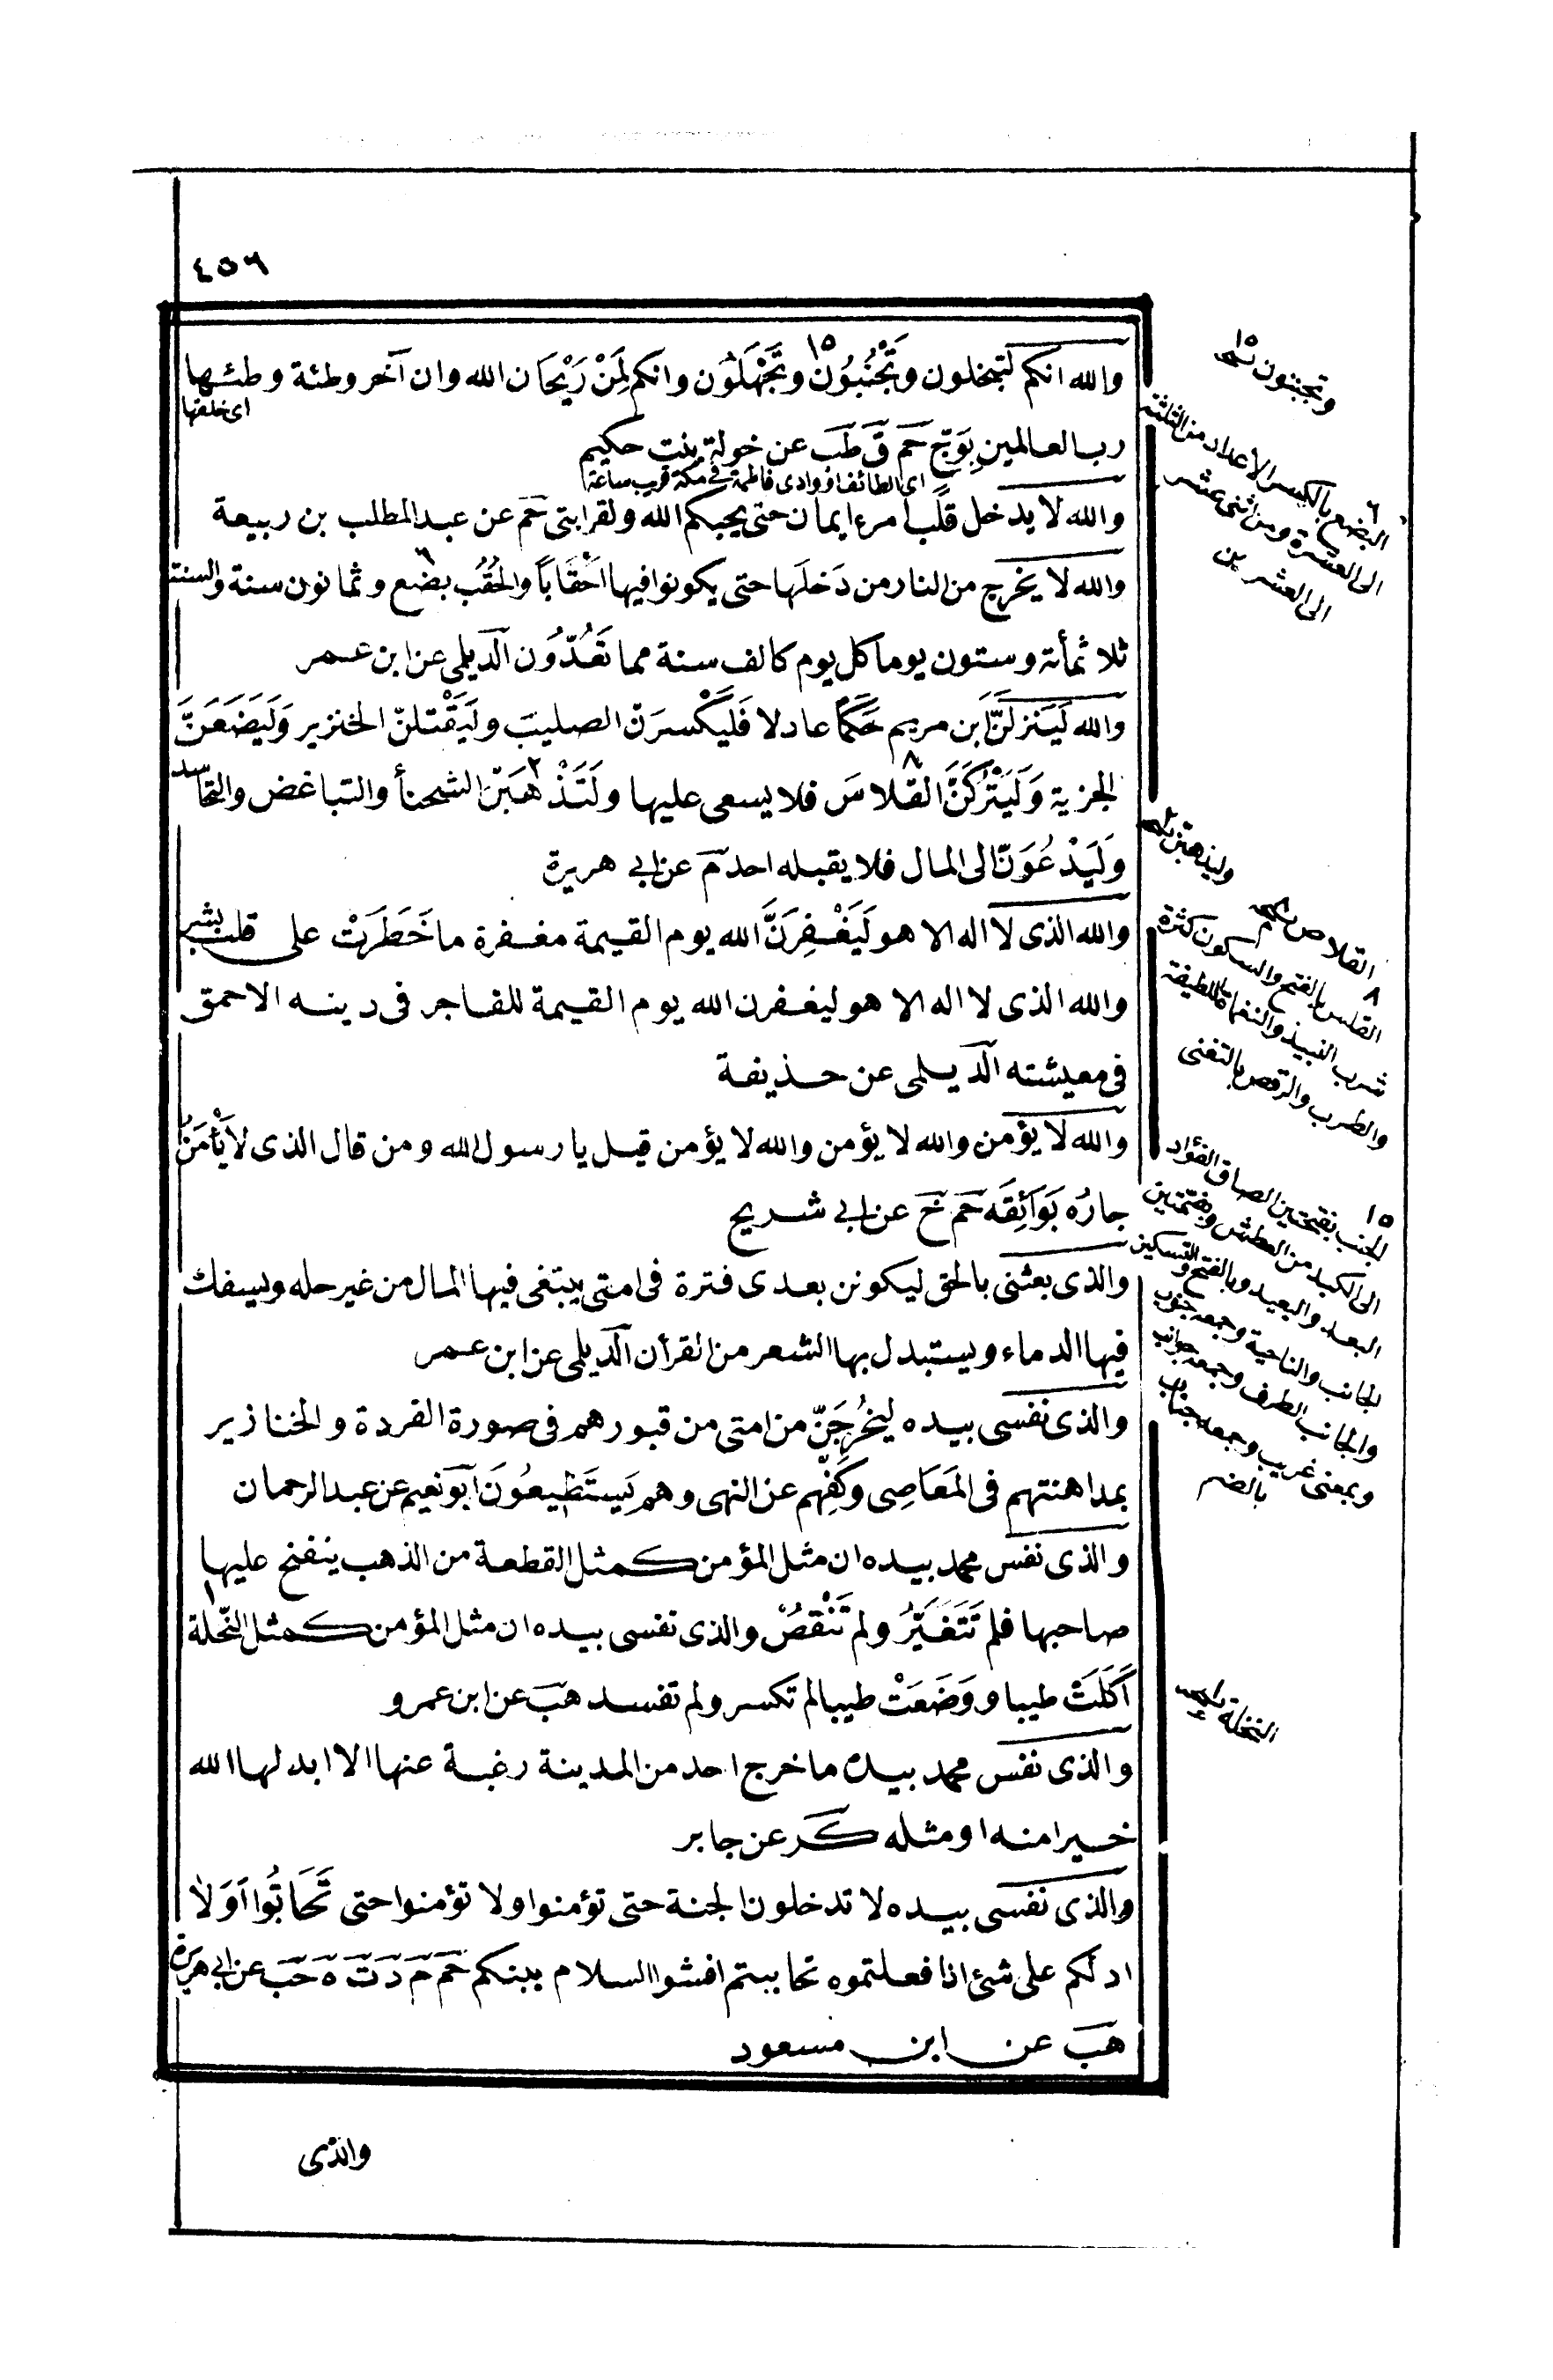 ٤٥٦
والله انكم لتبخلون وَتَجْنُبُوُن١٥ وتَجْهَلَوُن وانكم لَمِنْ رَيْحَان الله وان آخر وطئة وطئها
اى خلقها
رب العالمين بِوَجّ حَم قَ طَبَ عن خولة بنت حكيم
اى الطائف او وادى فاطمة فى مكة قريب ساعة
والله لا يدخل قلبَ امرء ايمان حتى يحبكم الله ولقرابتى حَم عن عبد المطلب بن ربيعة
والله لا يخرج من النار من دَخلَها حتى يكونوا فيها احْقَاباً والحُقُب بضع٦ وثمانون سنة والسنة
ثلاثمأة وستون يوما كل يوم كالف سنة مما تَعُدّوُن الَديلمى عن ابن عمر
والله لَيَنزلَنَّ ابَن مريم حَكَماً عادلا فَليَكْسرَنّ الصليبَ ولَيَقْتلنّ الخنزير وَلَيَضَعَنَّ
الجزية وَلَيَتْرُكَنَّ القلاسَ٨ فلا يسعى عليها ولَتَذْهَبَنّ٢ الشحنأ والتباغض والتحاسد
وَلَيَدْعُوَنّ الى المال فلا يقبله احد مَ عن ابى هريرة
والله الذى لا اله الا هو لَيَغْفِرَنَّ الله يوم القيمة مغفرة ما خَطَرَتْ على قلب بشر
والله الذى لا اله الا هو ليغفرن الله يوم القيمة للفاجر فى دينه الاحمق
فى معيشته الَديلمى عن حذيفة
والله لا يؤمن والله لا يؤمن والله لا يؤمن قيل يا رسول الله ومن قال الذى لا يَأْمَنُ
جارُه بَوَائِقَه حَم خَ عن ابى شريح
والذى بعثنى بالحق ليكونن بعدى فترة فى امتى يبتغى فيها المال من غير حله ويسفك
فيها الدماء ويستبدل بها الشعر من القرأن الَديلمى عن ابن عمر
والذى نفسى بيده ليخرُجَنّ من امتى من قبورهم فى صورة القردة والخنازير
بمداهنتهم فى المَعَاصِى وكَفِّهم عن النهى وهم يَستَطِيعُونَ ابَونعيم عن عبد الرحمان
والذى نفس محمد بيده ان مثل المؤمن كمثل القطعة من الذهب ينفخ عليها
صاحبها فلم تَتَغَيَّرْ ولم تَنْقصْ والذى نفسى بيده ان مثل المؤمن كمثل النّحلة١
أَكَلَتْ طيبا ووَضَعَتْ طيبا لم تكسر ولم تفسد هَبَ عن ابن عمرو
والذى نفس محمد بيده ما خرج احد من المدينة رغبة عنها الا ابدلها الله
خيرا منه او مثله كَر عن جابر
والذى نفسى بيده لا تدخلون الجنة حتى تؤمنوا ولا تؤمنوا حتى تَحَابُّوا اَوَلا
ادلكم على شئ اذا فعلتموه تحاببتم افشوا السلام بينكم حَم مَ دَ تَ هَ حَب عن ابى هريرة
هَبَ عن ابن مسعود
والذى
١٥ وتجبنون
٦ البضع بالكسر الاعداد من الثلثة
الى العشرة ومن اثنى عشر
الى العشرين
٢ وليذهبن
القلاص
٨ القلس بالفتح والسكون كثرة
شرب النبيذ والنغمات اللطيفة
والطرب والرقص بالتغنى
١٥ الجنب بفتحتين الصاق الفؤاد
الى الكبد من العطش وبضمتين
البعد والبعيد وبالفتح والتسكين
الجانب والناحية وجمعه جنوب
والجانب الطرف وجمعه جوانب
وبمعنى غريب وجمعه جناب
بالضم
١ النخلة